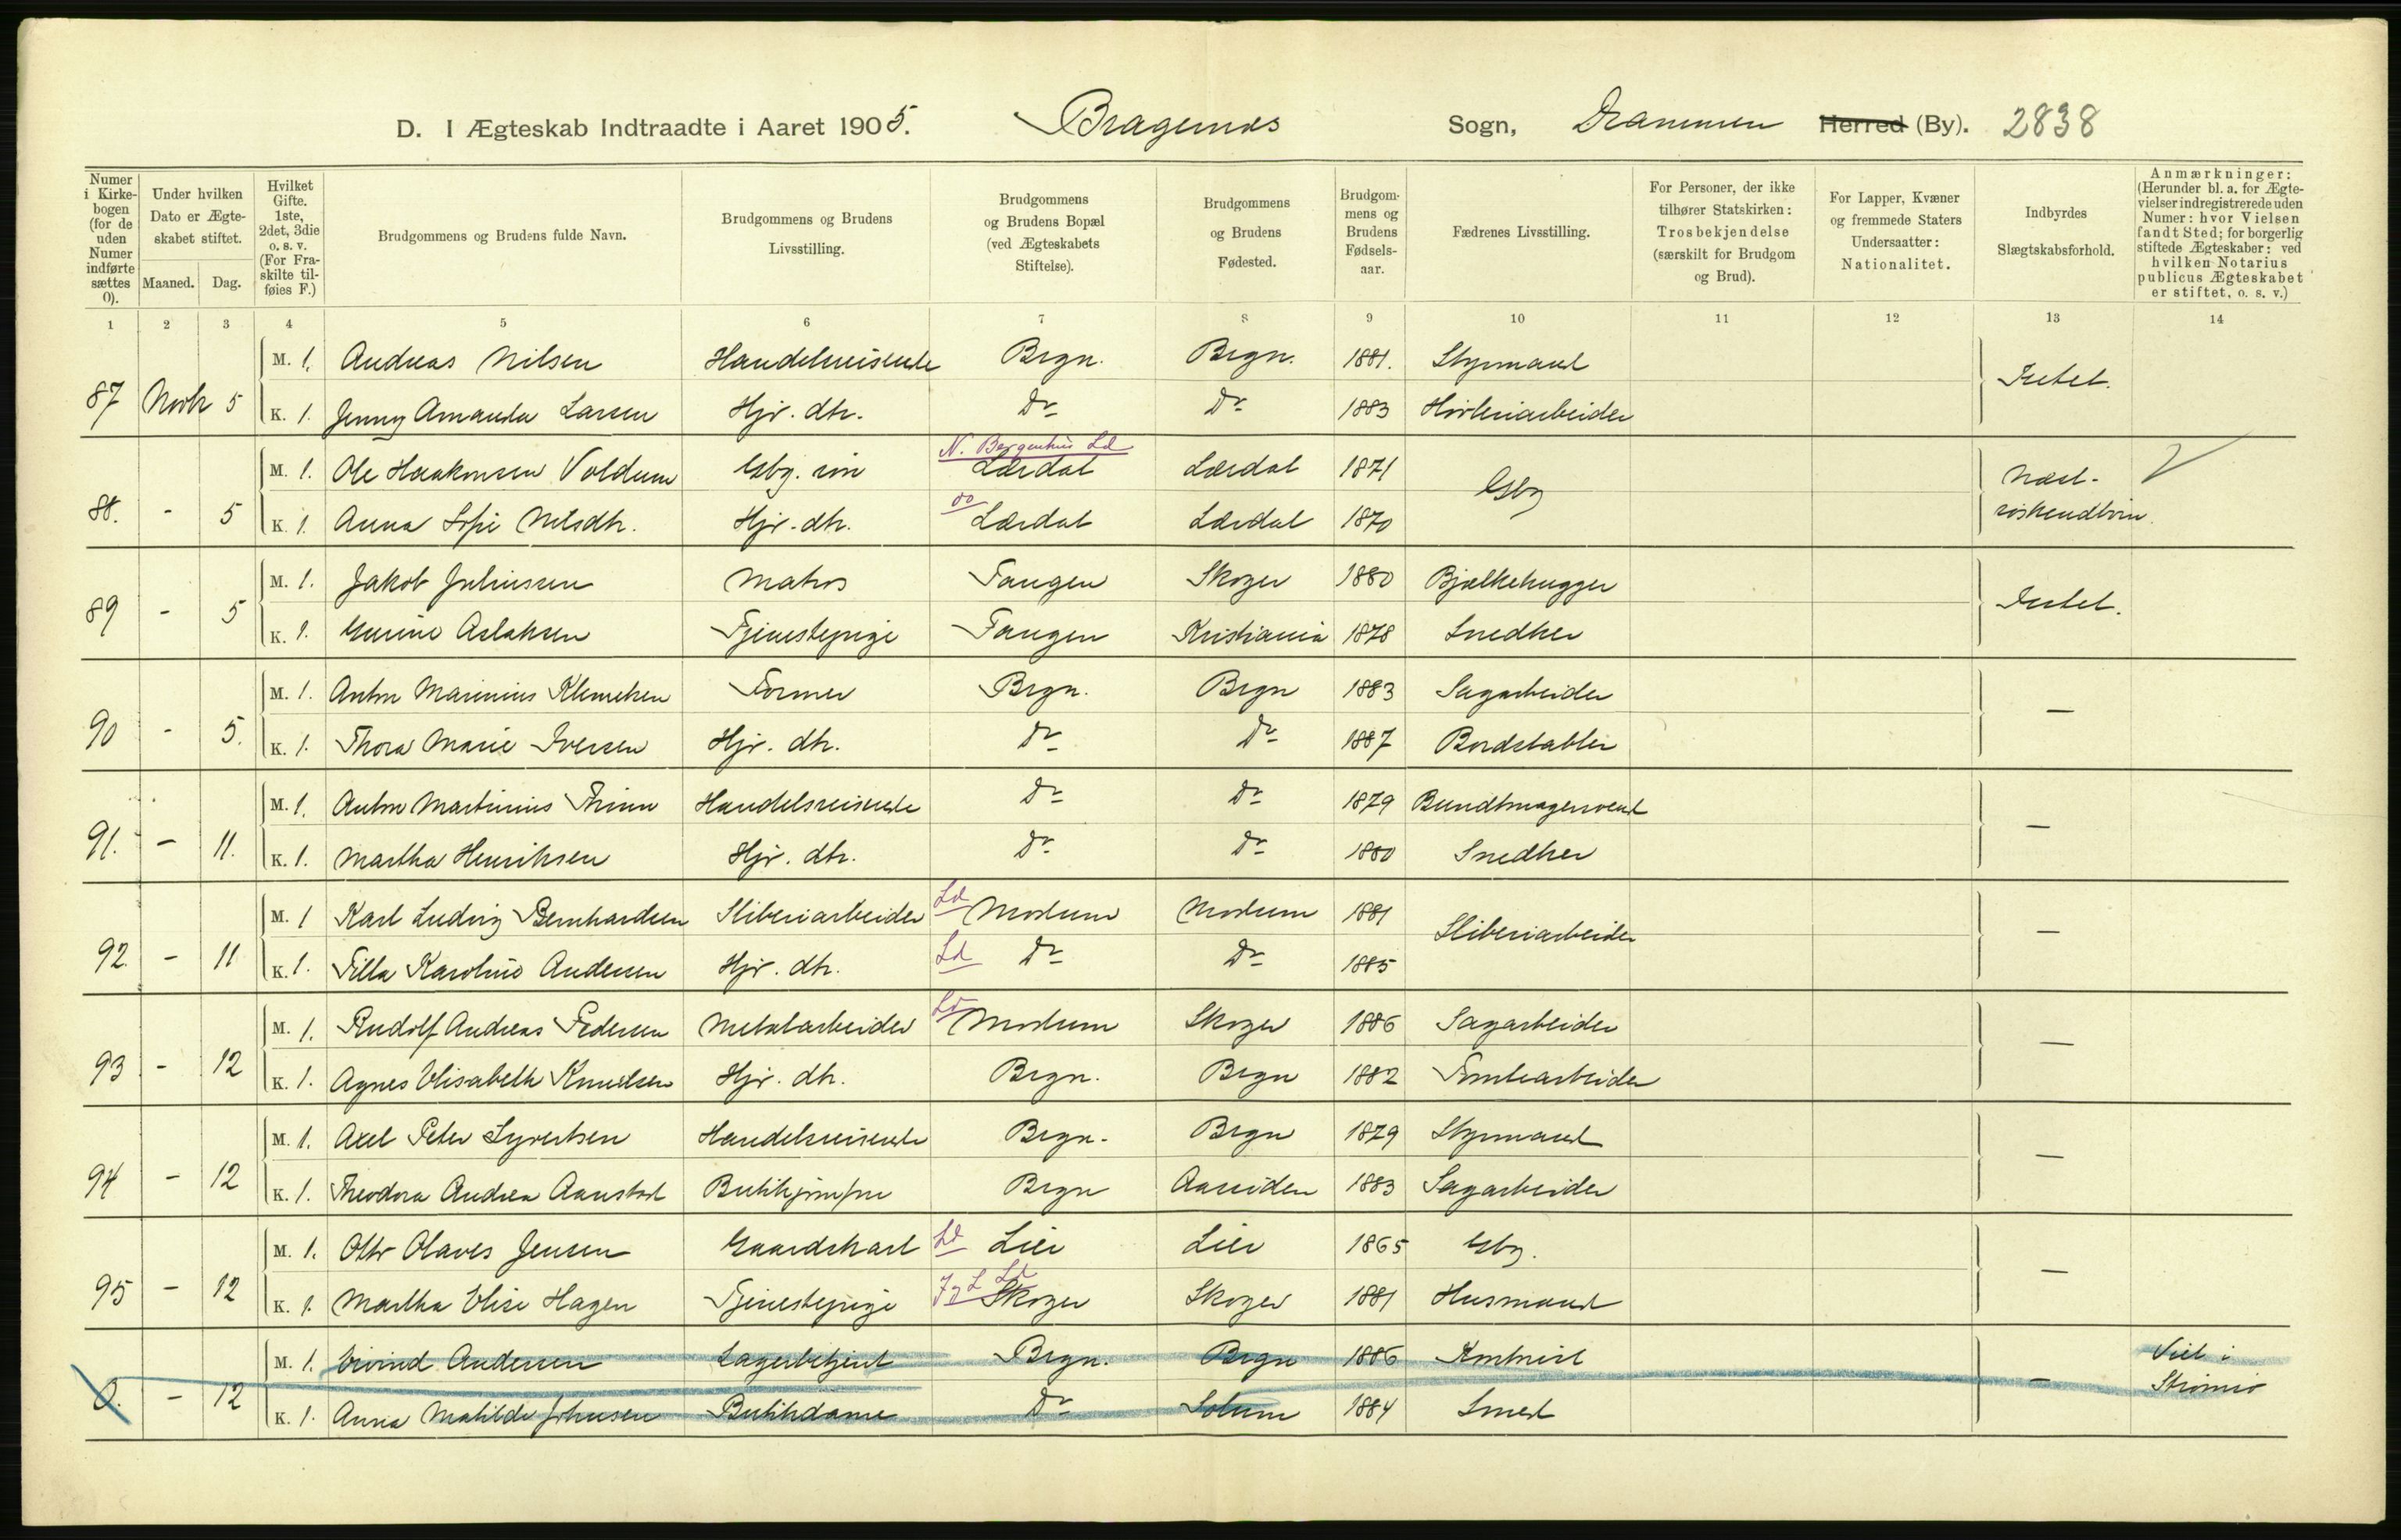 D. I Ægteskab Indtraadte i Aaret 1905. Bragernæs Sogn, Drammen Herred (By). 2838
Numer i Kirkebogen (for de uden Numer indførte sættes 0).
Under hvilken Dato er Ægteskabet stiftet.
Maaned. Dag.
Hvilket Gifte. 1ste, 2det, 3die o. s. v. (For Fraskilte tilføies F.)
Brudgommens og Brudens fulde Navn.
Brudgommens og Brudens Livsstilling.
Brudgommens og Brudens Bopæl (ved Ægteskabets Stiftelse).
Brudgommens og Brudens Fødested.
Brudgommens og Brudens Fødselsaar.
Fædrenes Livsstilling.
For Personer, der ikke tilhører Statskirken: Trosbekjendelse (særskilt for Brudgom og Brud).
For Lapper, Kvæner og fremmede Staters Undersaatter: Nationalitet.
Indbyrdes Slægtskabsforhold.
Anmærkninger: (Herunder bl. a. for Ægtevielser indregistrerede uden Numer: hvor Vielsen fandt Sted; for borgerlig stiftede Ægteskaber: ved hvilken Notarius publicus Ægteskabet er stiftet, o. s. v.)
1 2 3 4 5 6 7 8 9 10 11 12 13 14
M. 1. Andreas Nilsen Handelsreisende Brgn. Brgn. 1881. Styrmand
87 Novbr 5 Intet.
K. 1. Jenny Amanda Larsen Hjv. dtr. Do Do 1883 Høvleriarbeider
N. Bergenhus Ld
M. 1. Ole Haakonsen Voldum Gbg. søn Lærdal Lærdal 1871
88. - 5 Gbg Næst-
søskendbørn
K. 1. Anna Sofie Nilsdtr. Hjv. dtr. do Lærdal Lærdal 1870
M. 1. Jakob Juliussen Matros Tangen Skoger 1880 Bjælkehugger
89 - 5 Intet.
K. 1. Gurine Aslaksen Tjenestepige Tangen Kristiania 1878 Snedker
M. 1. Anton Marinius Klemetsen Former Brgn. Brgn 1883 Sagarbeider
90 - 5. —
K. 1. Thora Marie Iversen Hjv. dtr. Do Do 1887 Bordstabler
M. 1. Anton Martinius Handelsreisende Do Do 1879 Bundtmagersvend
91. - 11. —
K. 1. Martha Henriksen Hjv. dtr. Do Do 1880 Snedker
M. 1 Karl Ludvig Bernhardsen Sliberiarbeider Ld Modum Modum 1881
92. - 11 Sliberiarbeider —
K. 1. Tilla Karoline Andersen Hjv. dtr. Ld Do Do 1885
M. 1. Rudolf Andreas Pedersen Metalarbeider Ld Modum Skoger 1886 Sagarbeider
93 - 12 —
K. 1. Agnes Elisabeth Knudsen Hjv. dtr. Brgn. Brgn 1882 Tomtearbeider
M. 1. Axel Peter Syvertsen Handelsreisende Brgn. Brgn 1879 Styrmand
94 - 12 —
K. 1. Theodora Andrea Aanstad Butikjomfru Brgn Aasiden 1883 Sagarbeider
M. 1. Otto Olaves Jensen Gaardskarl Ld Lier Lier 1865 Gbg.
95 - 12 —
K. 1. Martha Elise Hagen Tjenestepige Ld Skoger Skoger 1881 Husmand
M. 1. Eivind Andersen Lagerbetjent Brgn. Brgn 1886 Kontorist Viet i
0. - 12 — Strømsø
K. 1. Anna Matilde Johnsen Butikdame Do Solum 1884 Smed